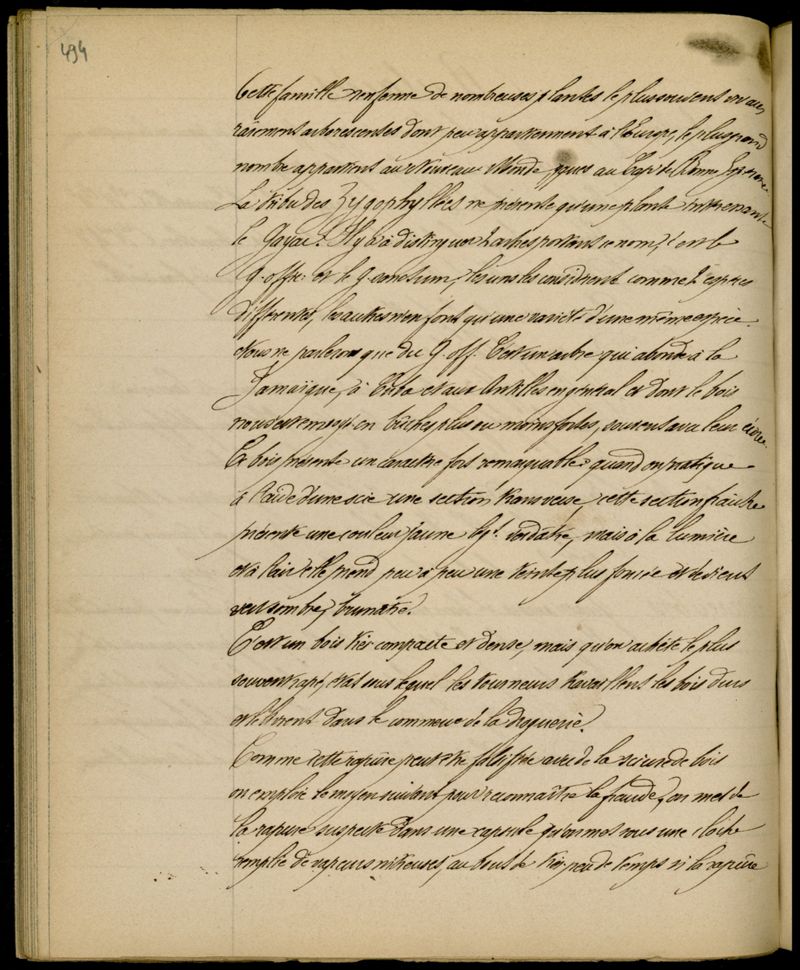 494
Cette famille renferme de nombreuses plantes le plus souvent vivaces
rarement arborescentes dont peu appartiennent à l'Europe, le plus grand
nombre appartient au Nouveau Monde, au Cap de Bonne Espérance
La tribu des Zygophyllées ne présente qu'une plante intéressante
le Gayac. Il y a à distinguer 2 arbres portant ce nom, c'est le
g. off. et le g. sanctum, les uns les considèrent comme 2 espèces
différentes, les autres n'en font qu'une variété d'une même espèce.
Nous ne parlerons que du G. off. C'est un arbre qui abonde à la
Jamaïque, à Cuba et aux Antilles en général et dont le bois
nous est envoyé en bûches plus ou moins fortes, souvent avec leur écorce.
Ce bois présente un caractère fort remarquable: quand on pratique
à l'aide d'une scie une section transverse, cette section fraîche
présente une couleur jaune lég.t verdâtre, mais à la lumière
et à l'air elle prend peu à peu une teinte plus foncée et devient
vert sombre, brunâtre.
C'est un bois très compacte et dense, mais qu'on achète le plus
souvent rapé, état sous lequel les tourneurs travaillent les bois durs
et le livrent dans le commerce de la droguerie.
Comme cette rapure peut être falsifiée avec de la sciure de bois
on emploie le moyen suivant pour reconnaître la fraude, on met de
la rapure suspecte dans une capsule qu'on met sous une cloche
remplie de vapeurs nitreuses, au bout de très peu de temps si la rapure